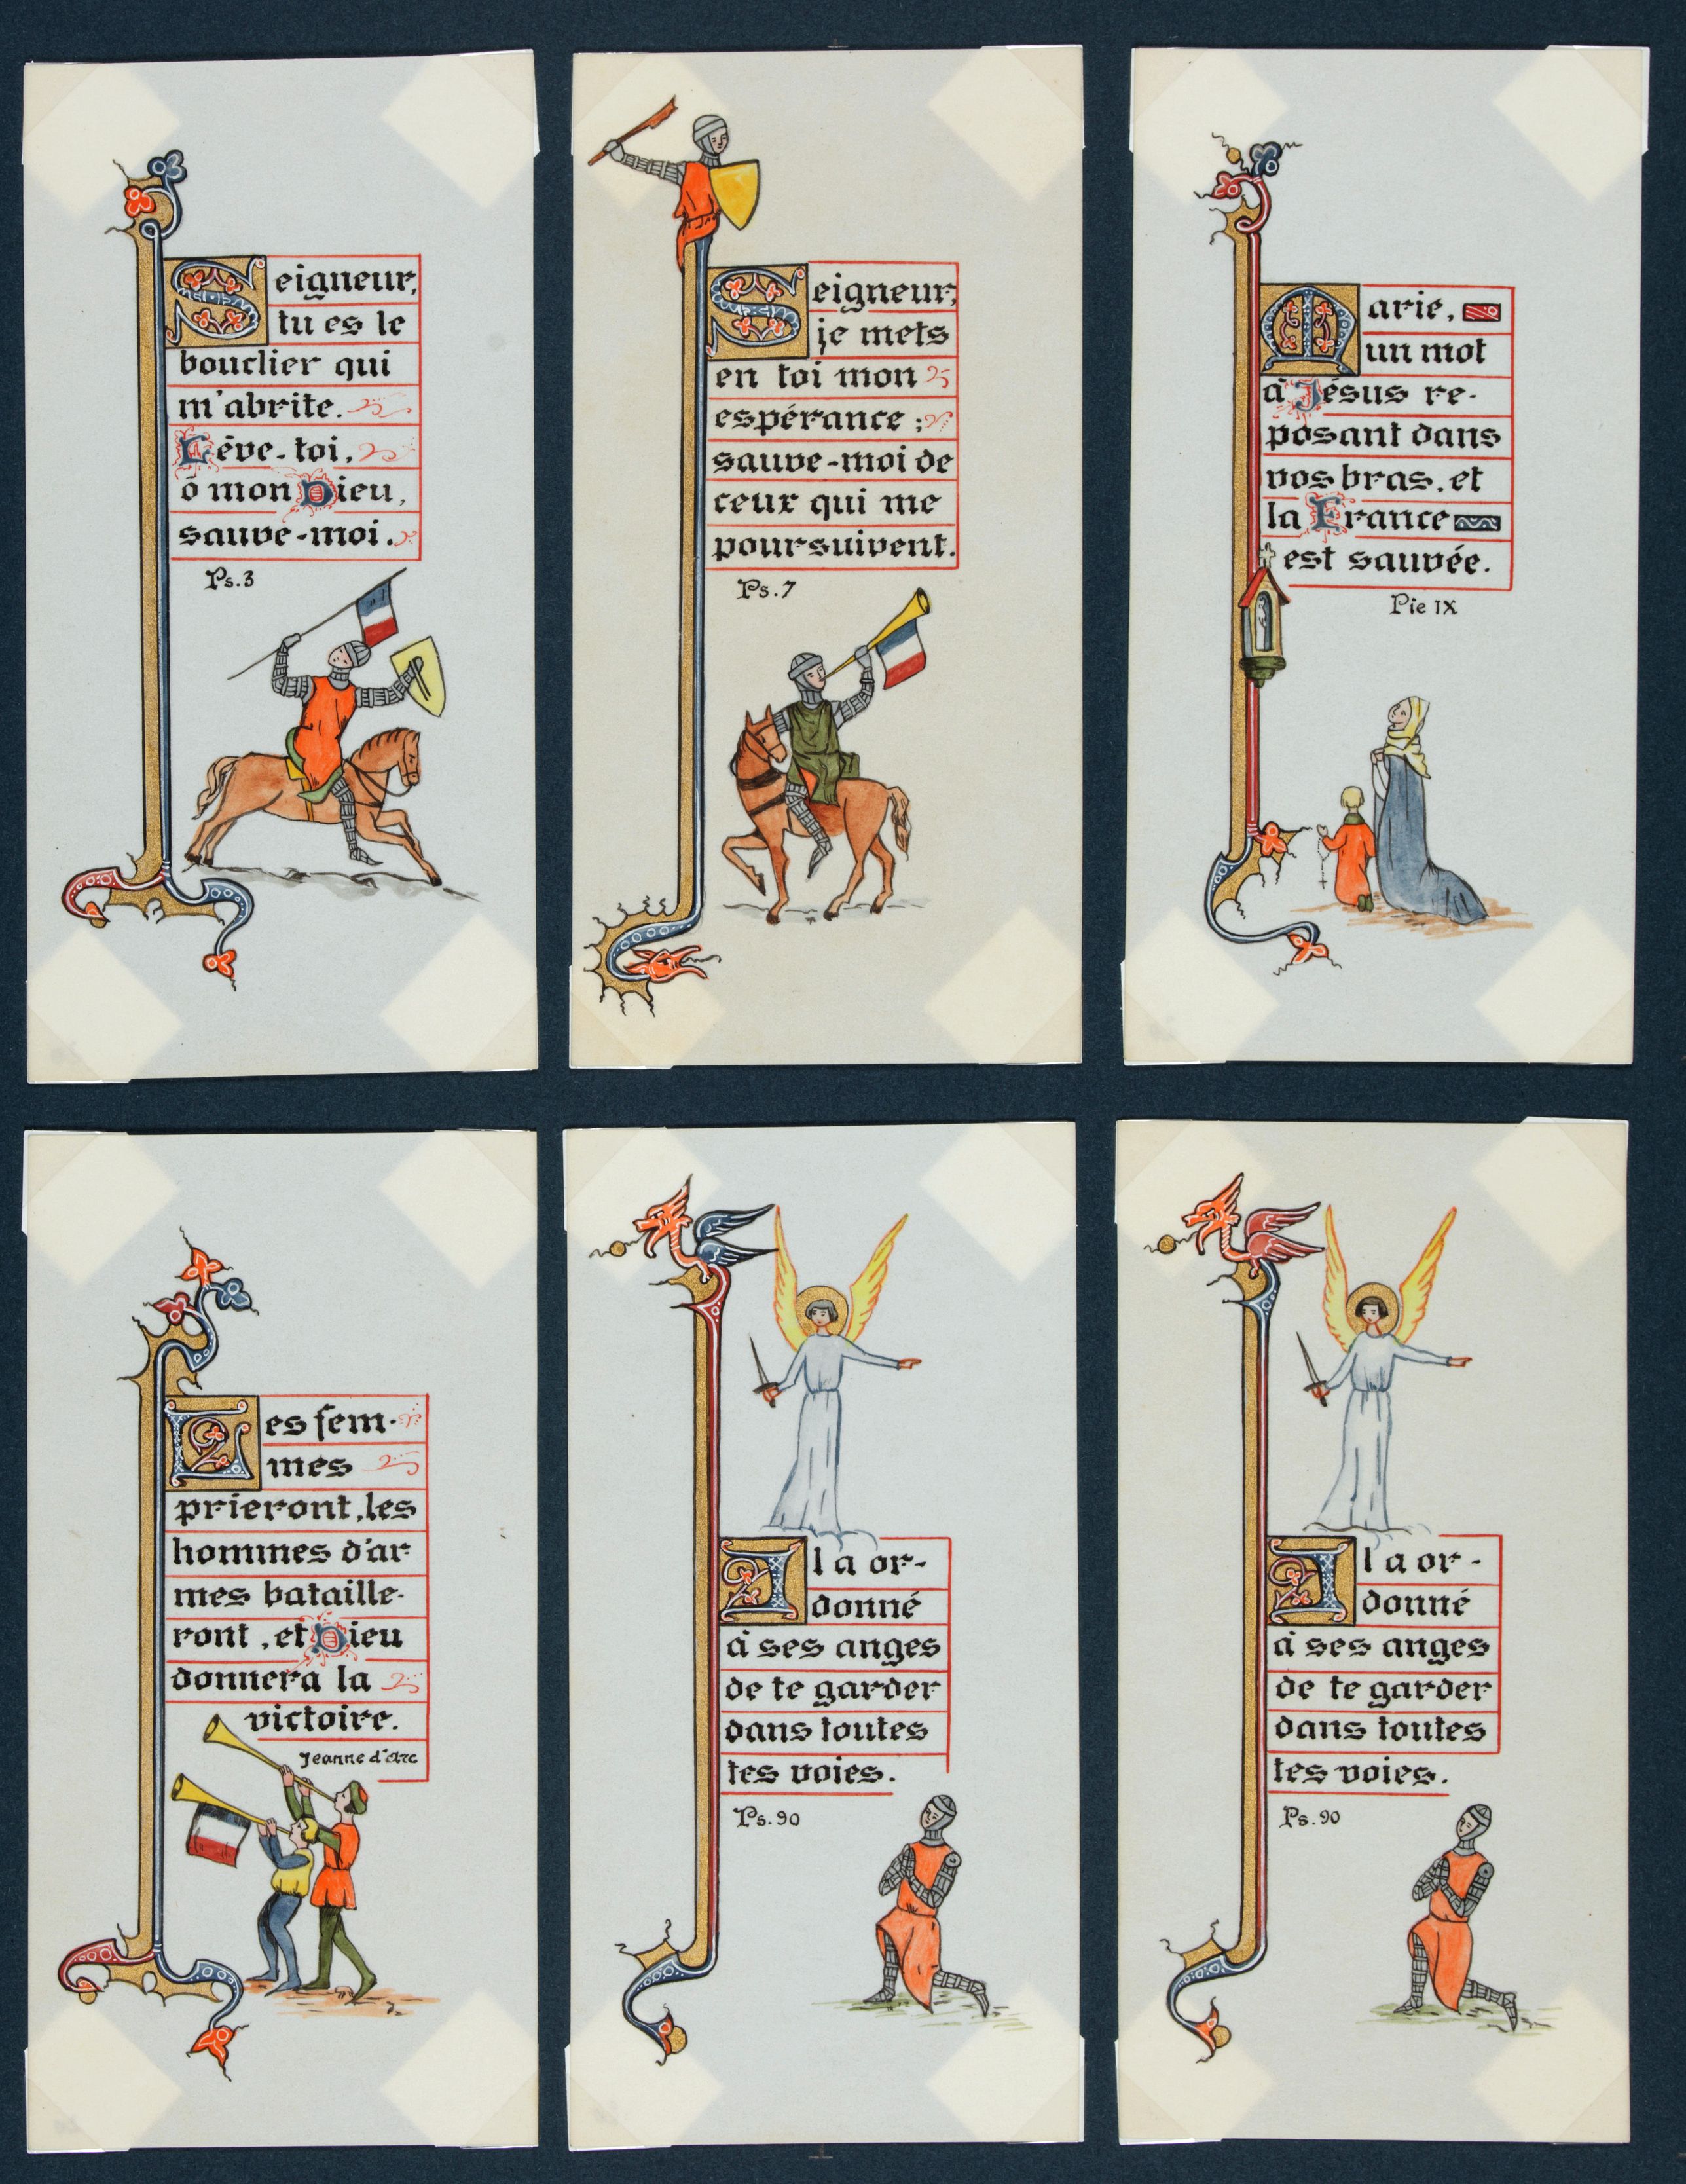 Seigneur,
tu es le
bouclier qui
m'abrite.
Lève-toi,
ô mon Dieu,
sauve-moi.
Ps. 3
Seigneur,
je mets
en toi mon
espérance ;
sauve-moi de
ceux qui me
poursuivent.
Ps. 7
Marie,
un mot
à Jésus re-
posant dans
vos bras, et
la France
est sauvée.
Pie IX
Les fem-
mes
prieront, les
hommes d'ar-
mes bataille-
ront, et Dieu
donnera la
victoire.
Jeanne d'Arc
Il a or-
donné
à ses anges
de te garder
dans toutes
tes voies.
Ps. 90
Il a or-
donné
à ses anges
de te garder
dans toutes
tes voies.
Ps. 90